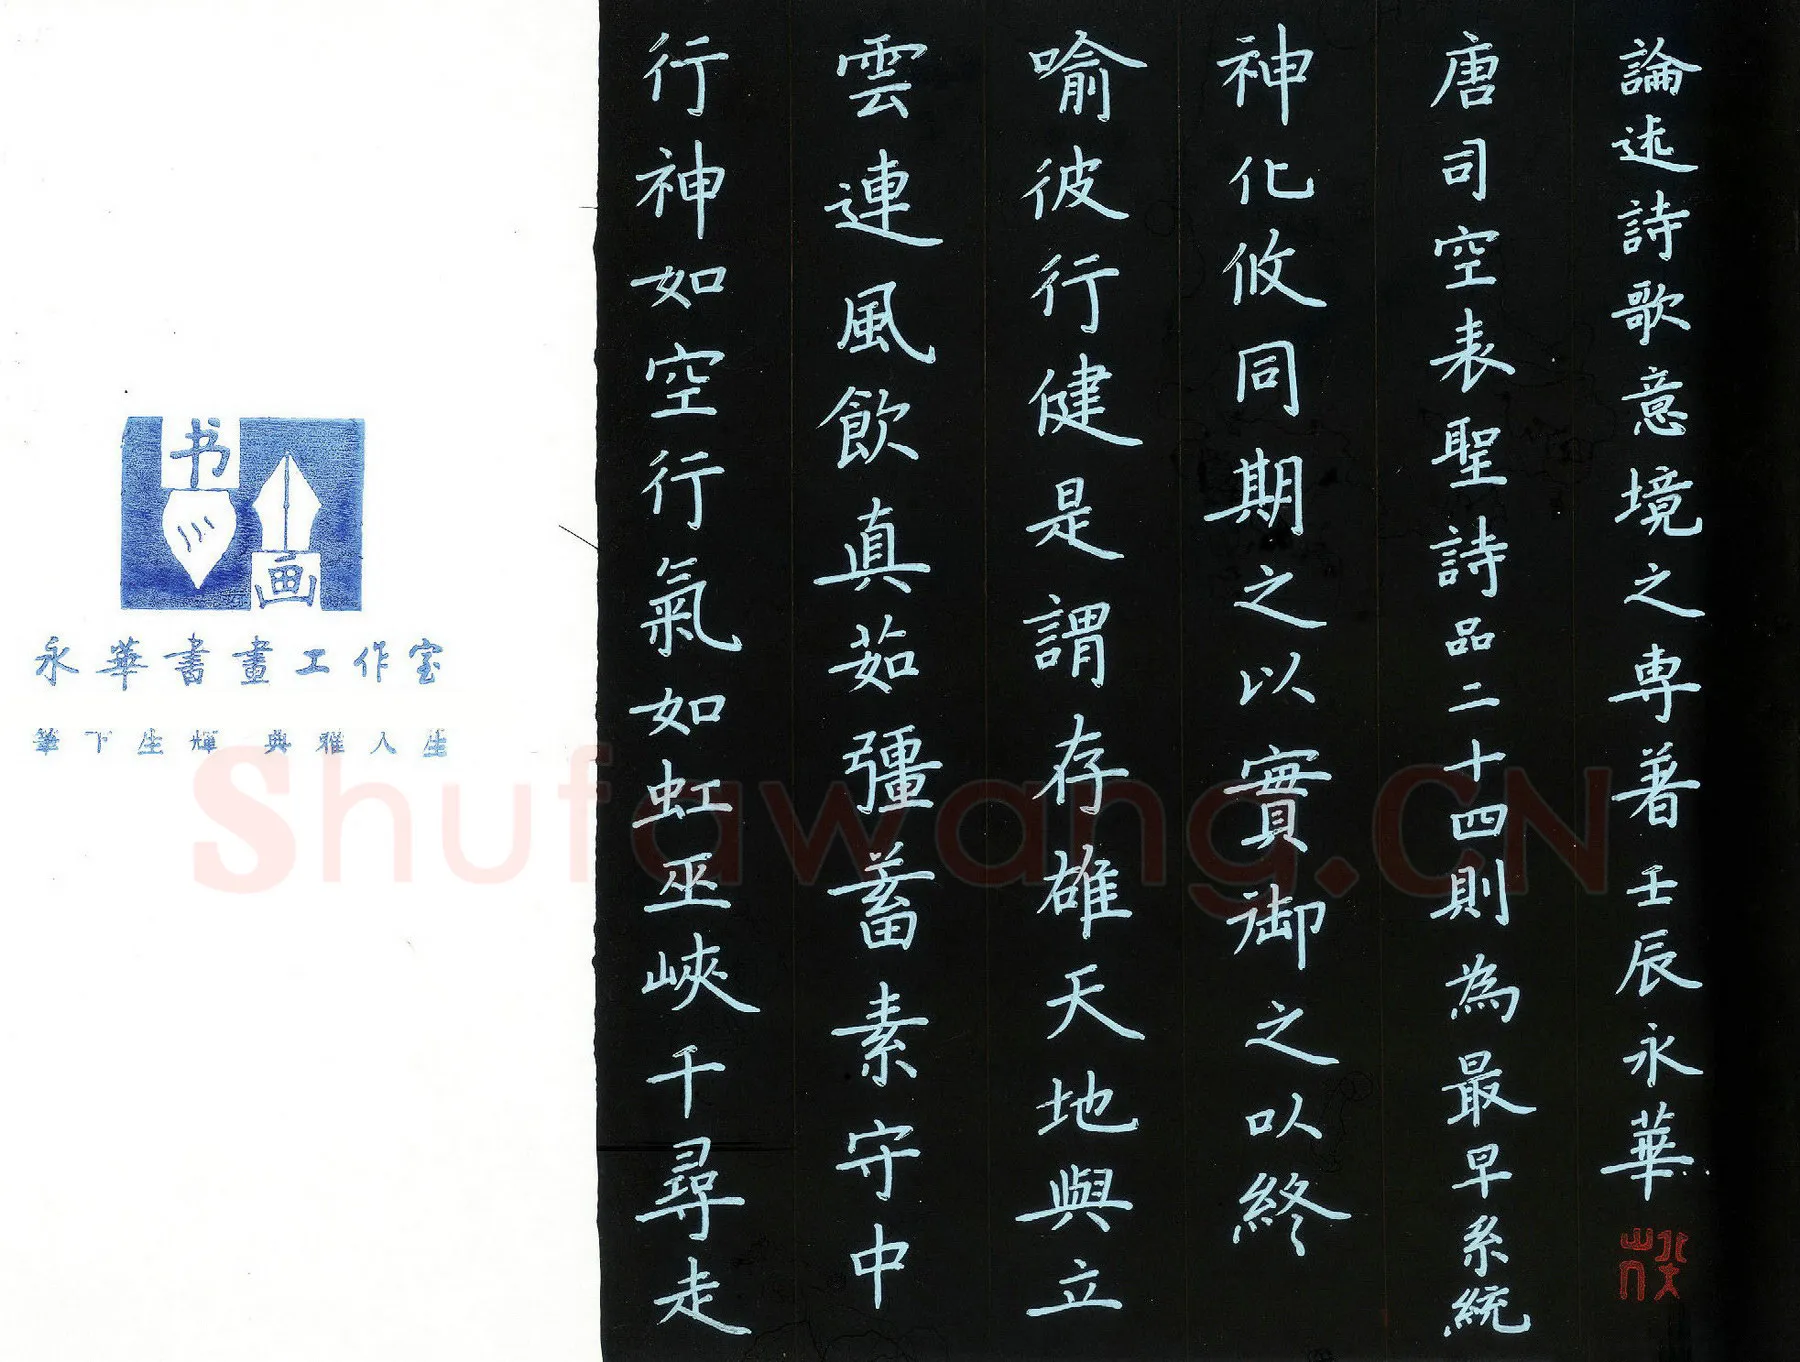 行神如空行氣如虹巫峽千尋走
雲連風飲真茹彊蓄素守中
喻彼行健是謂存雄天地與立
神化攸同期之以實御之以終
唐司空表聖詩品二十四則為最早系統
論述詩歌意境之専著壬辰永華
书
画
永華書畫工作室
筆下生輝 典雅人生
Shufawang.CN